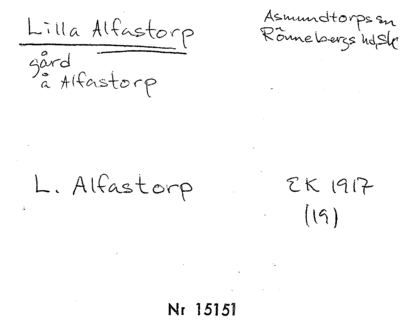 Lilla Alfastorp
Asmundtorps sn
Rönnebergs hd, Sk
gård
å Alfastorp
L. Alfastorp
EK 1917
(19)
Nr 15151